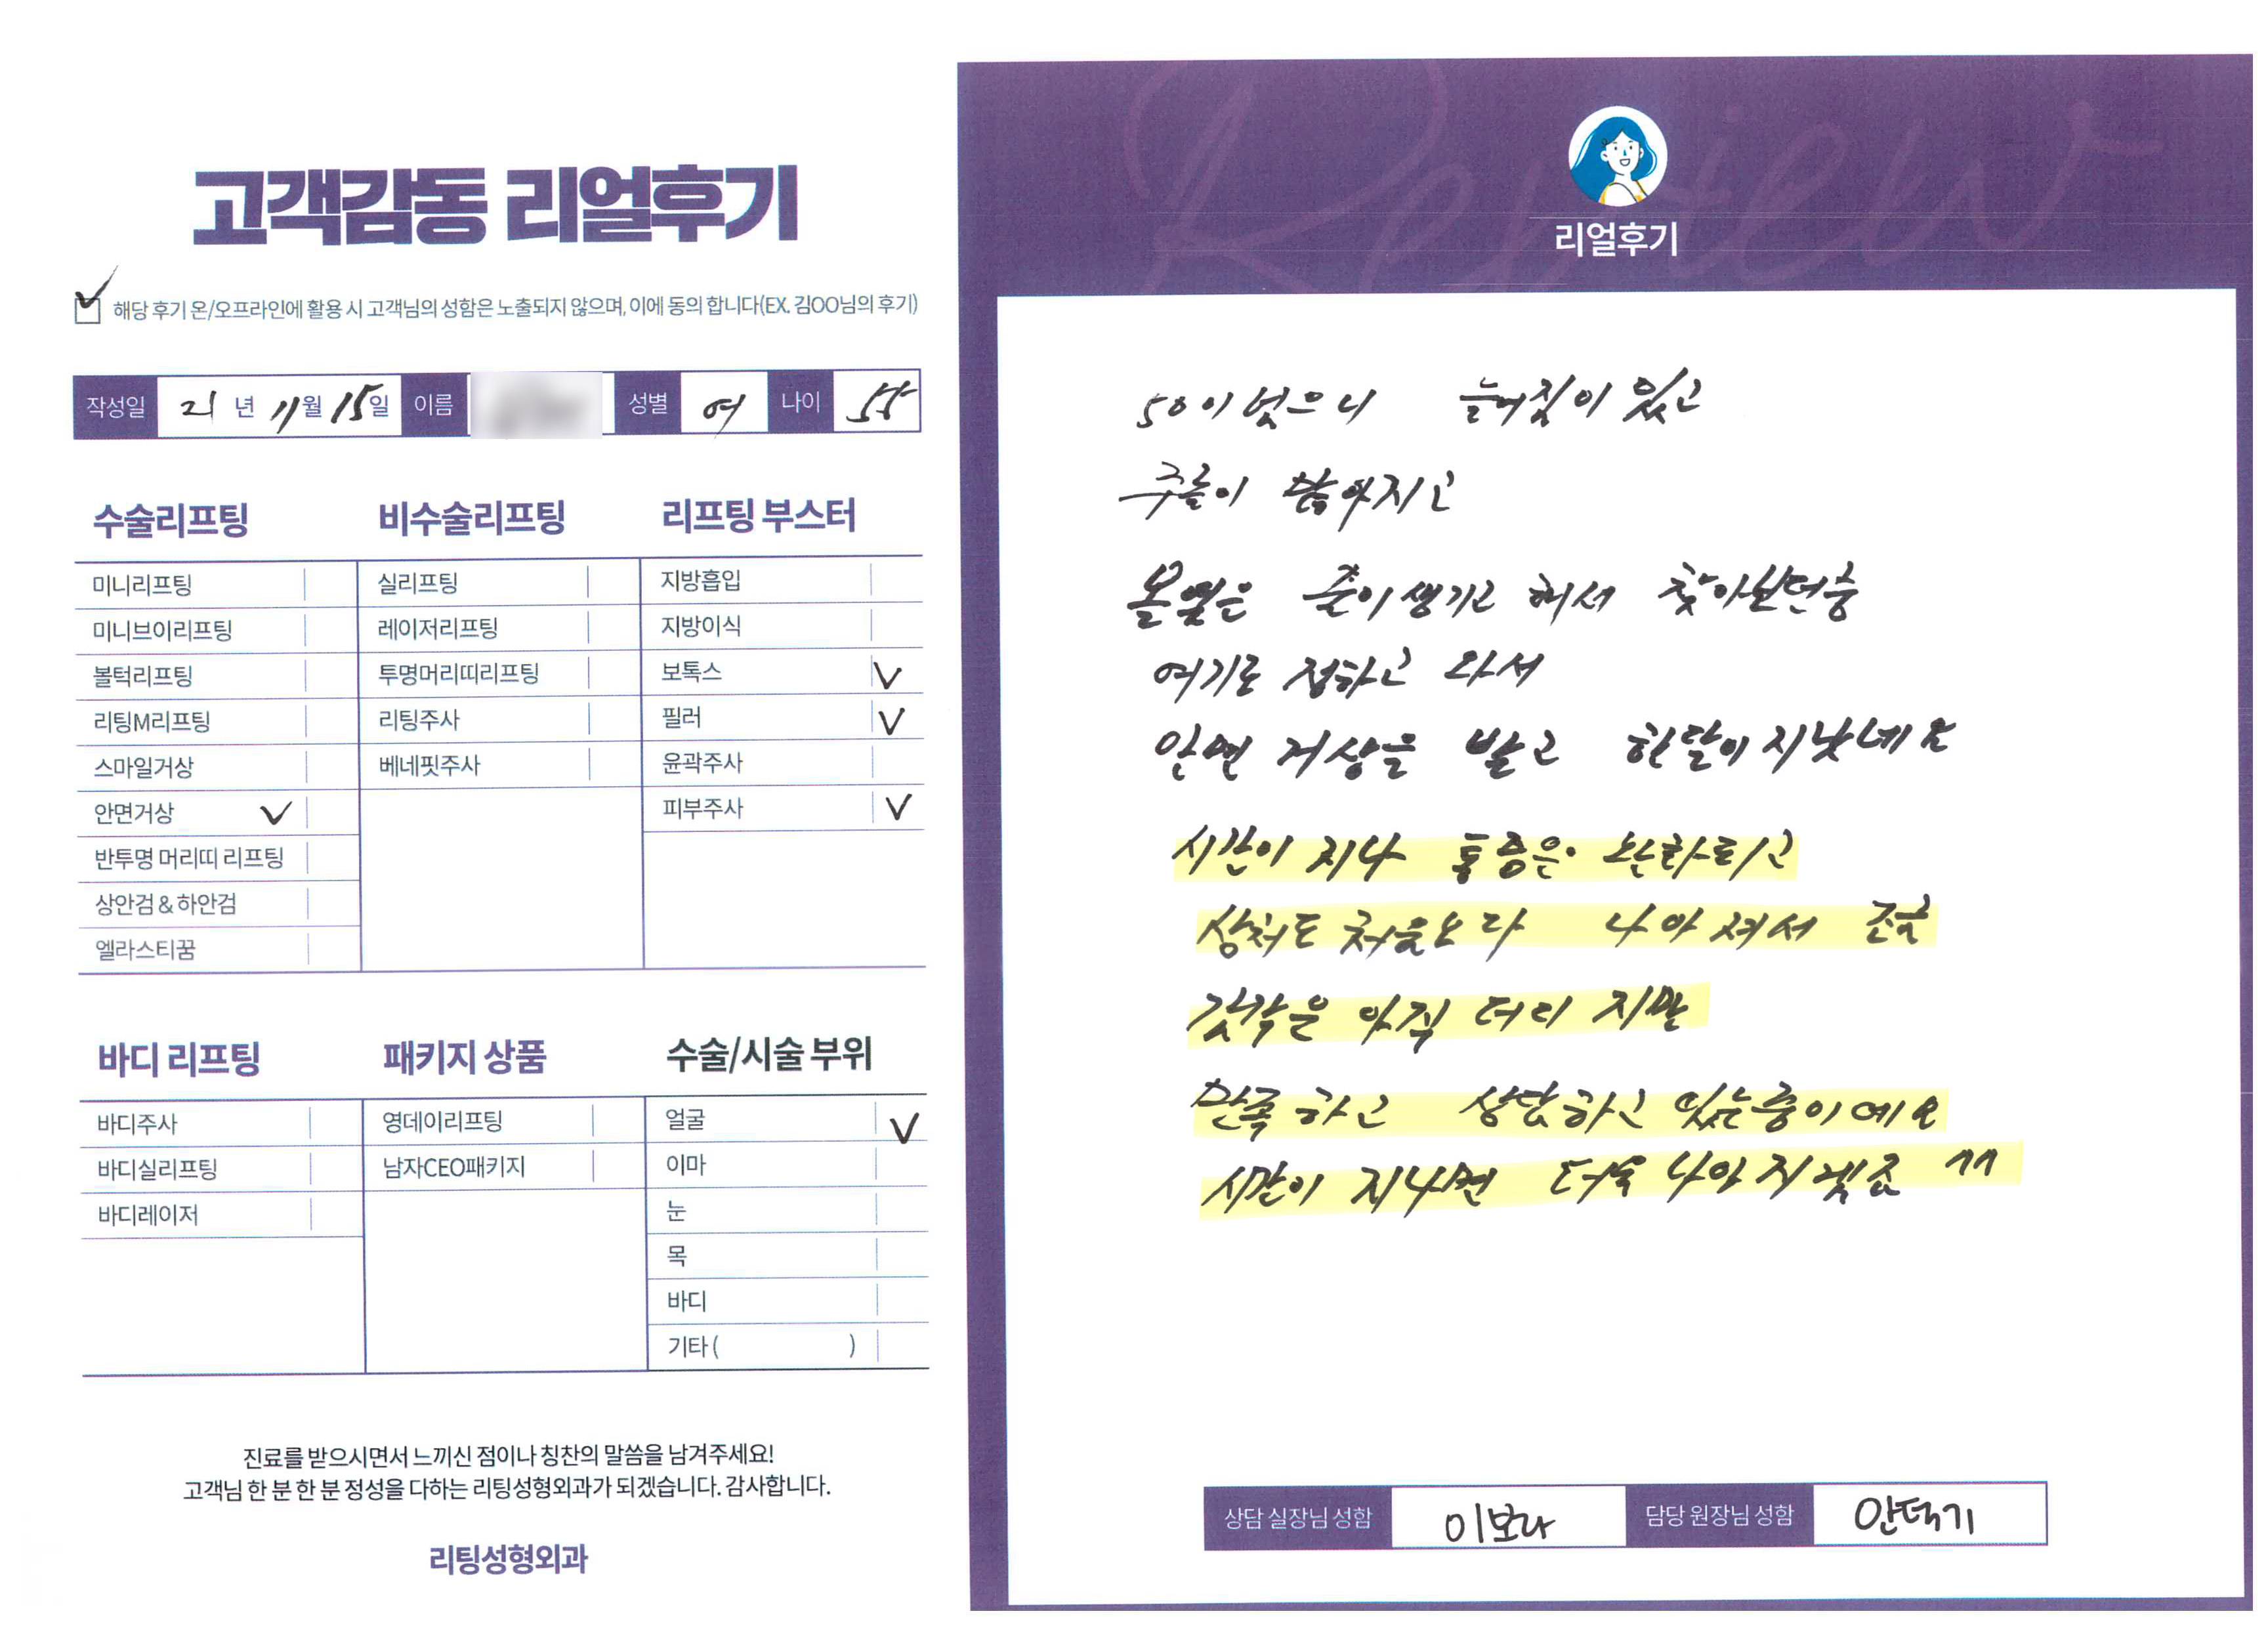 고객감동 리얼후기
해당 후기 온/오프라인에 활용 시 고객님의 성함은 노출되지 않으며, 이에 동의 합니다(EX. 김OO님의 후기)
작성일 21년 11월 15일 이름 성별 여 나이 55
수술리프팅
미니리프팅
미니브이리프팅
볼턱리프팅
리팅M리프팅
스마일거상
안면거상 ✓
반투명 머리띠 리프팅
상안검 & 하안검
엘라스티꿈
비수술리프팅
실리프팅
레이저리프팅
투명머리띠리프팅
리팅주사
베네핏주사
리프팅 부스터
지방흡입
지방이식
보톡스 ✓
필러 ✓
윤곽주사
피부주사 ✓
바디 리프팅
바디주사
바디실리프팅
바디레이저
패키지 상품
영데이리프팅
남자CEO패키지
수술/시술 부위
얼굴 ✓
이마
눈
목
바디
기타 ( )
진료를 받으시면서 느끼신 점이나 칭찬의 말씀을 남겨주세요!
고객님 한 분 한 분 정성을 다하는 리팅성형외과가 되겠습니다. 감사합니다.
리팅성형외과
Review
리얼후기
50이 넘으니 늘어짐이 있고
주름이 많아지고
볼옆은 줄이 생기고 해서 찾아보던중
여기로 정하고 와서
안면 거상을 받고 한달이 지낫네요
시간이 지나 통증은 완화되고
상처도 처음보다 나아져서 조금
감각은 아직 더디지만
만족하고 상담하고 있는중이예요
시간이 지나면 더욱 나아지겟죠 ^^
상담 실장님 성함 이보라 담당 원장님 성함 안덕기